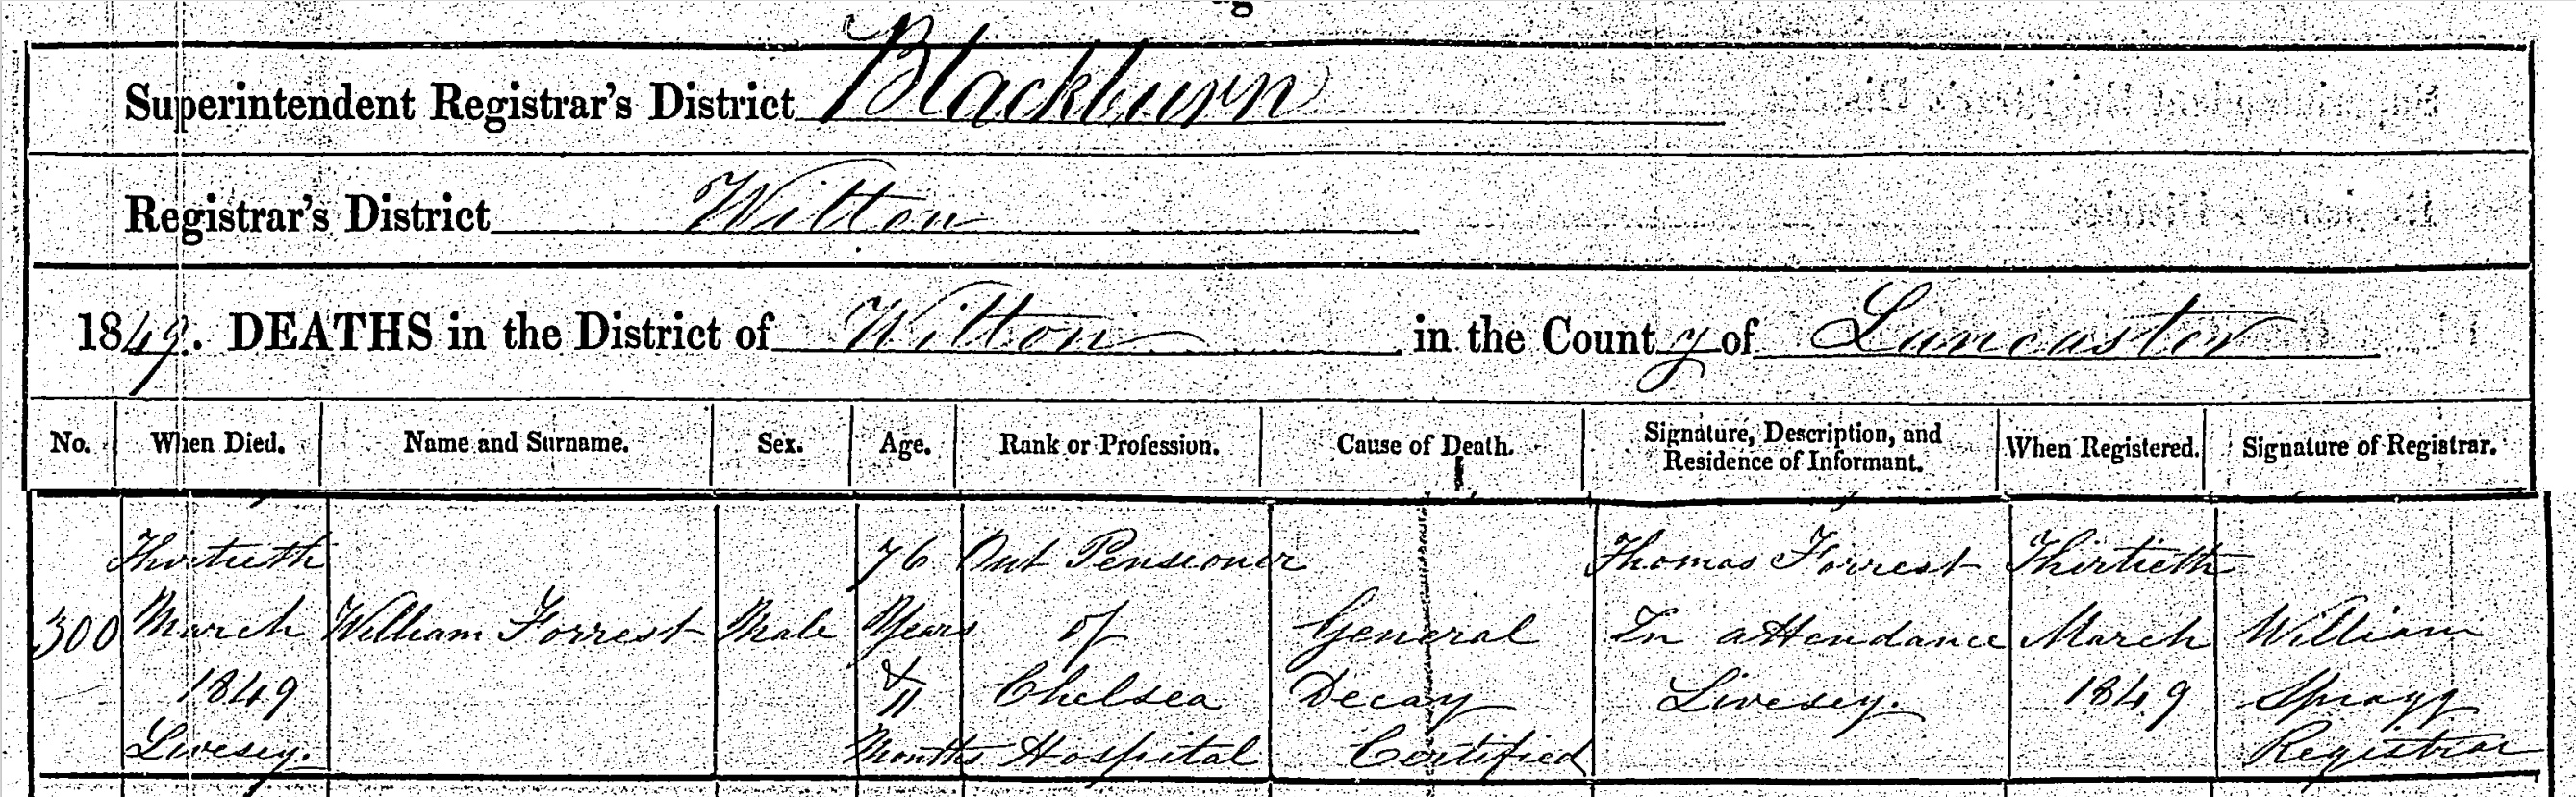 Superintendent Registrar's District Blackburn
Registrar's District Witton
1849. DEATHS in the District of Witton in the County of Lancaster
No. When Died. Name and Surname. Sex. Age. Rank or Profession. Cause of Death. Signature, Description, and Residence of Informant. When Registered. Signature of Registrar.
300
Thirtieth
March
1849
Livesey.
William Forrest
Male
76
Years
&
11
Months
Out Pensioner
of
Chelsea
Hospital
General
Decay
Certified
Thomas Forrest
In attendance
Livesey.
Thirtieth
March
1849
William
Spragg
Registrar